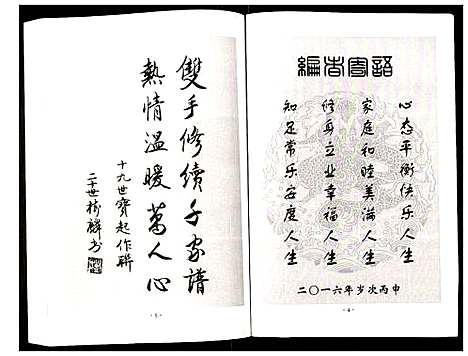 編者寄語
心态平衡快乐人生
家庭和睦美满人生
修身立业幸福人生
知足常乐安度人生
二〇一六年岁次丙申
·4·
雙手修續千家譜
熱情溫暖萬人心
十九世寶起作联
二十世樹麟书
·5·